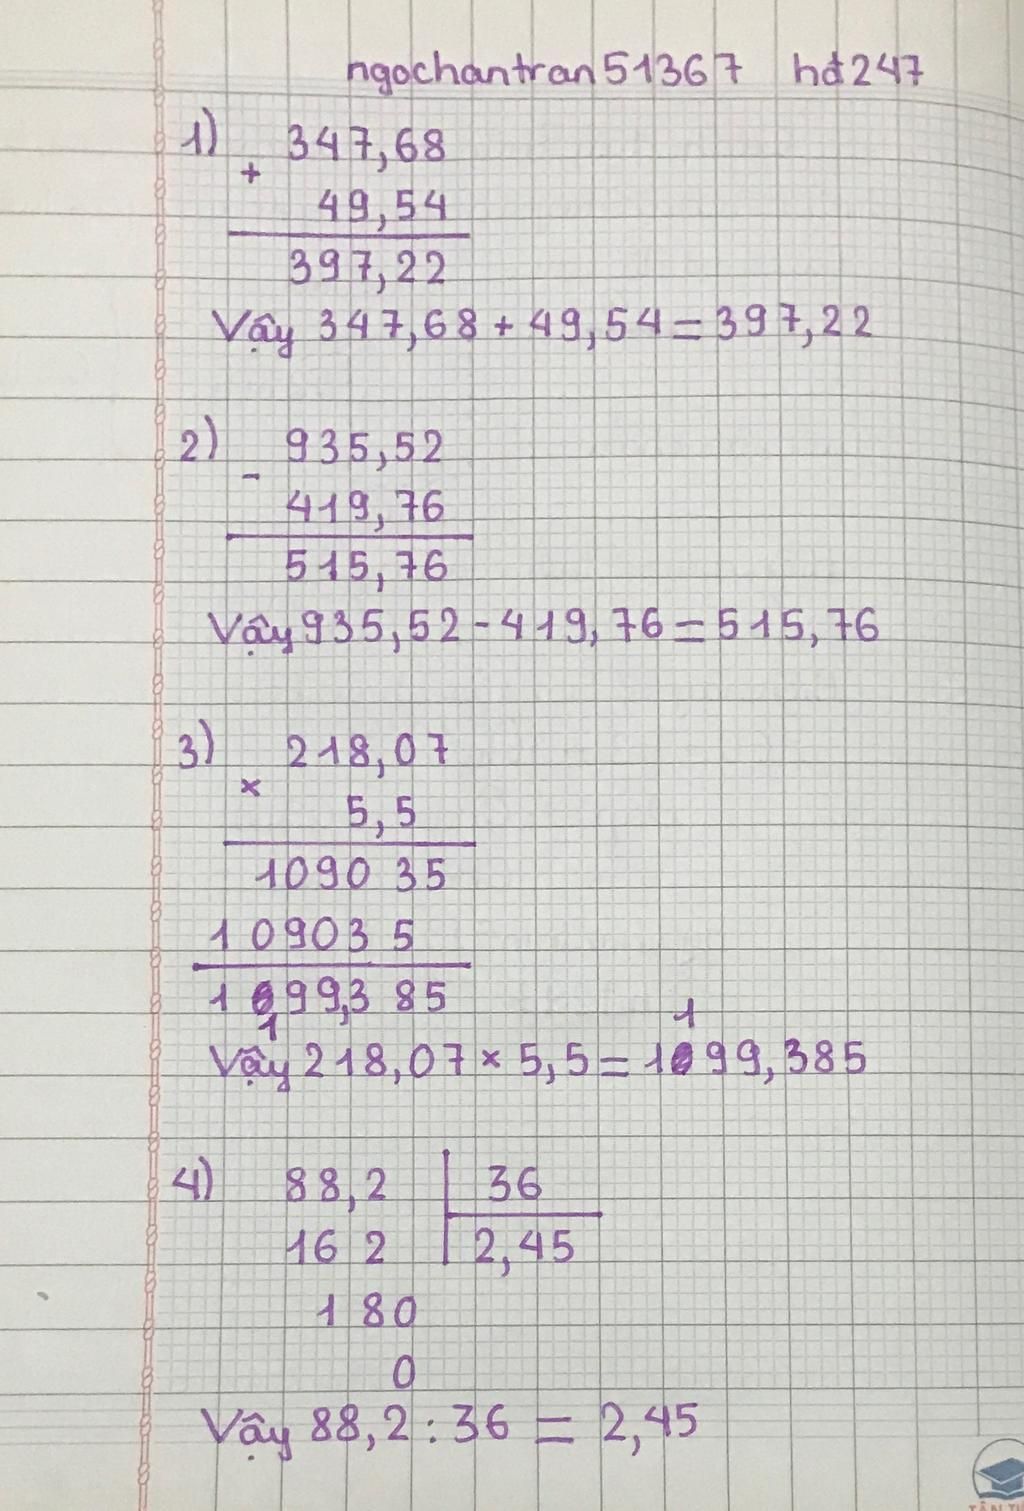 ngochantran51367 hđ247
1) 347,68
+
49,54
397,22
Vậy 347,68 + 49,54 = 397,22
2) 935,52
-
419,76
515,76
Vậy 935,52 - 419,76 = 515,76
3) 218,07
×
5,5
1090 35
1 0903 5
1 199,3 85
Vậy 218,07 × 5,5 = 1199,385
4) 88,2 36
16 2 2,45
1 80
0
Vậy 88,2 : 36 = 2,45